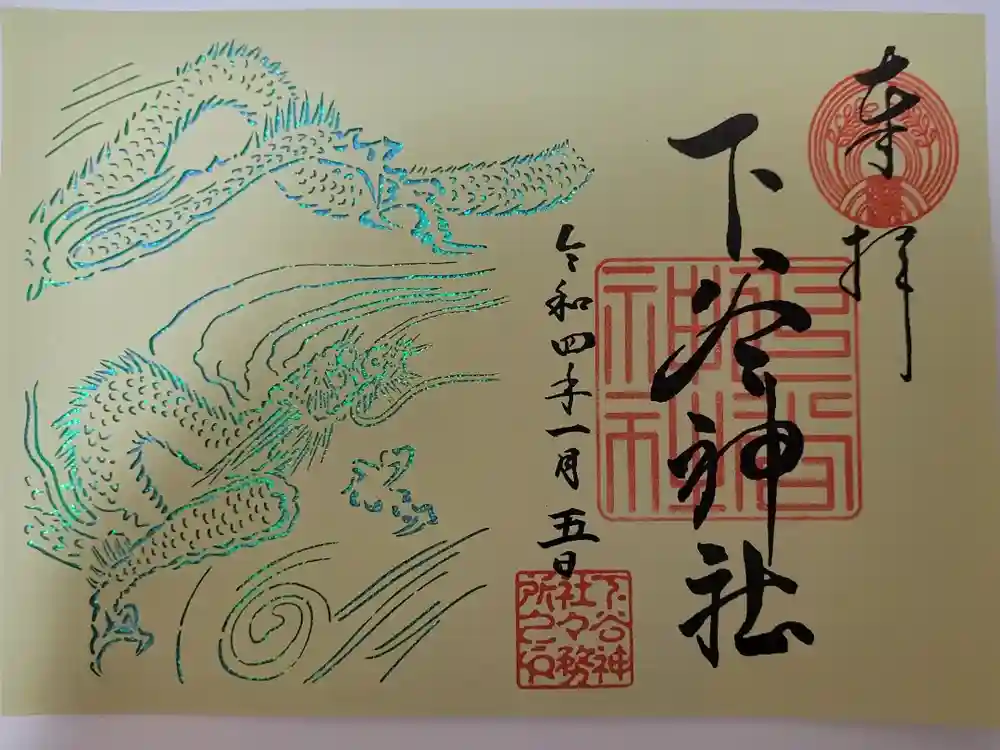 奉拝
下谷神社
令和四年一月五日
下谷神
社々務
所之印